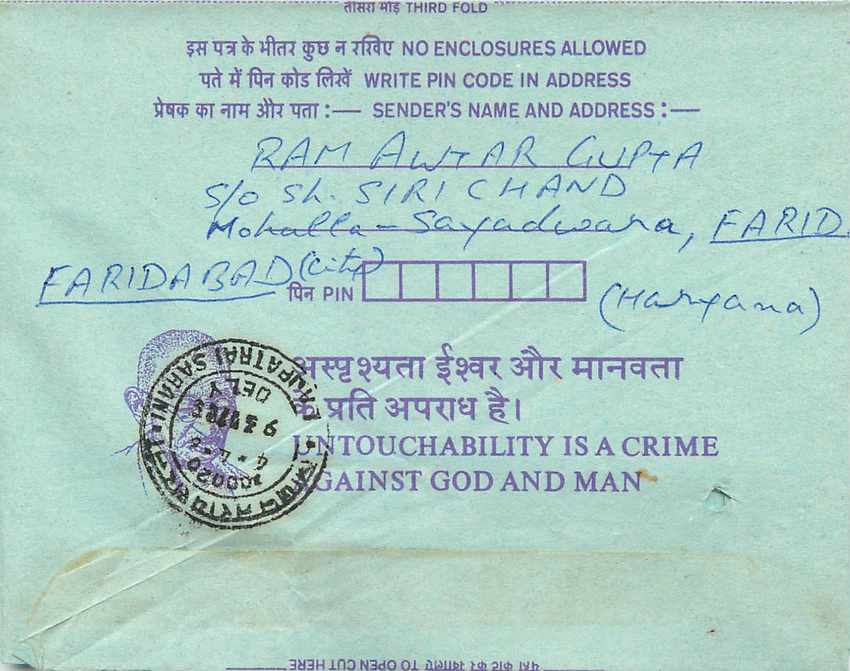 तीसरा मोड़ THIRD FOLD
इस पत्र के भीतर कुछ न रखिए NO ENCLOSURES ALLOWED
पते में पिन कोड लिखें WRITE PIN CODE IN ADDRESS
प्रेषक का नाम और पता :— SENDER'S NAME AND ADDRESS :—
RAM AWTAR GUPTA
S/o Sh. SIRI CHAND
Mohalla - Sayadwara, FARID
FARIDABAD (City)
पिन PIN
(Haryana)
अस्पृश्यता ईश्वर और मानवता
प्रति अपराध है।
UNTOUCHABILITY IS A CRIME
AGAINST GOD AND MAN
LAJPATRAI SARANI
DELY
700020
यहां काट कर खोलिए TO OPEN CUT HERE